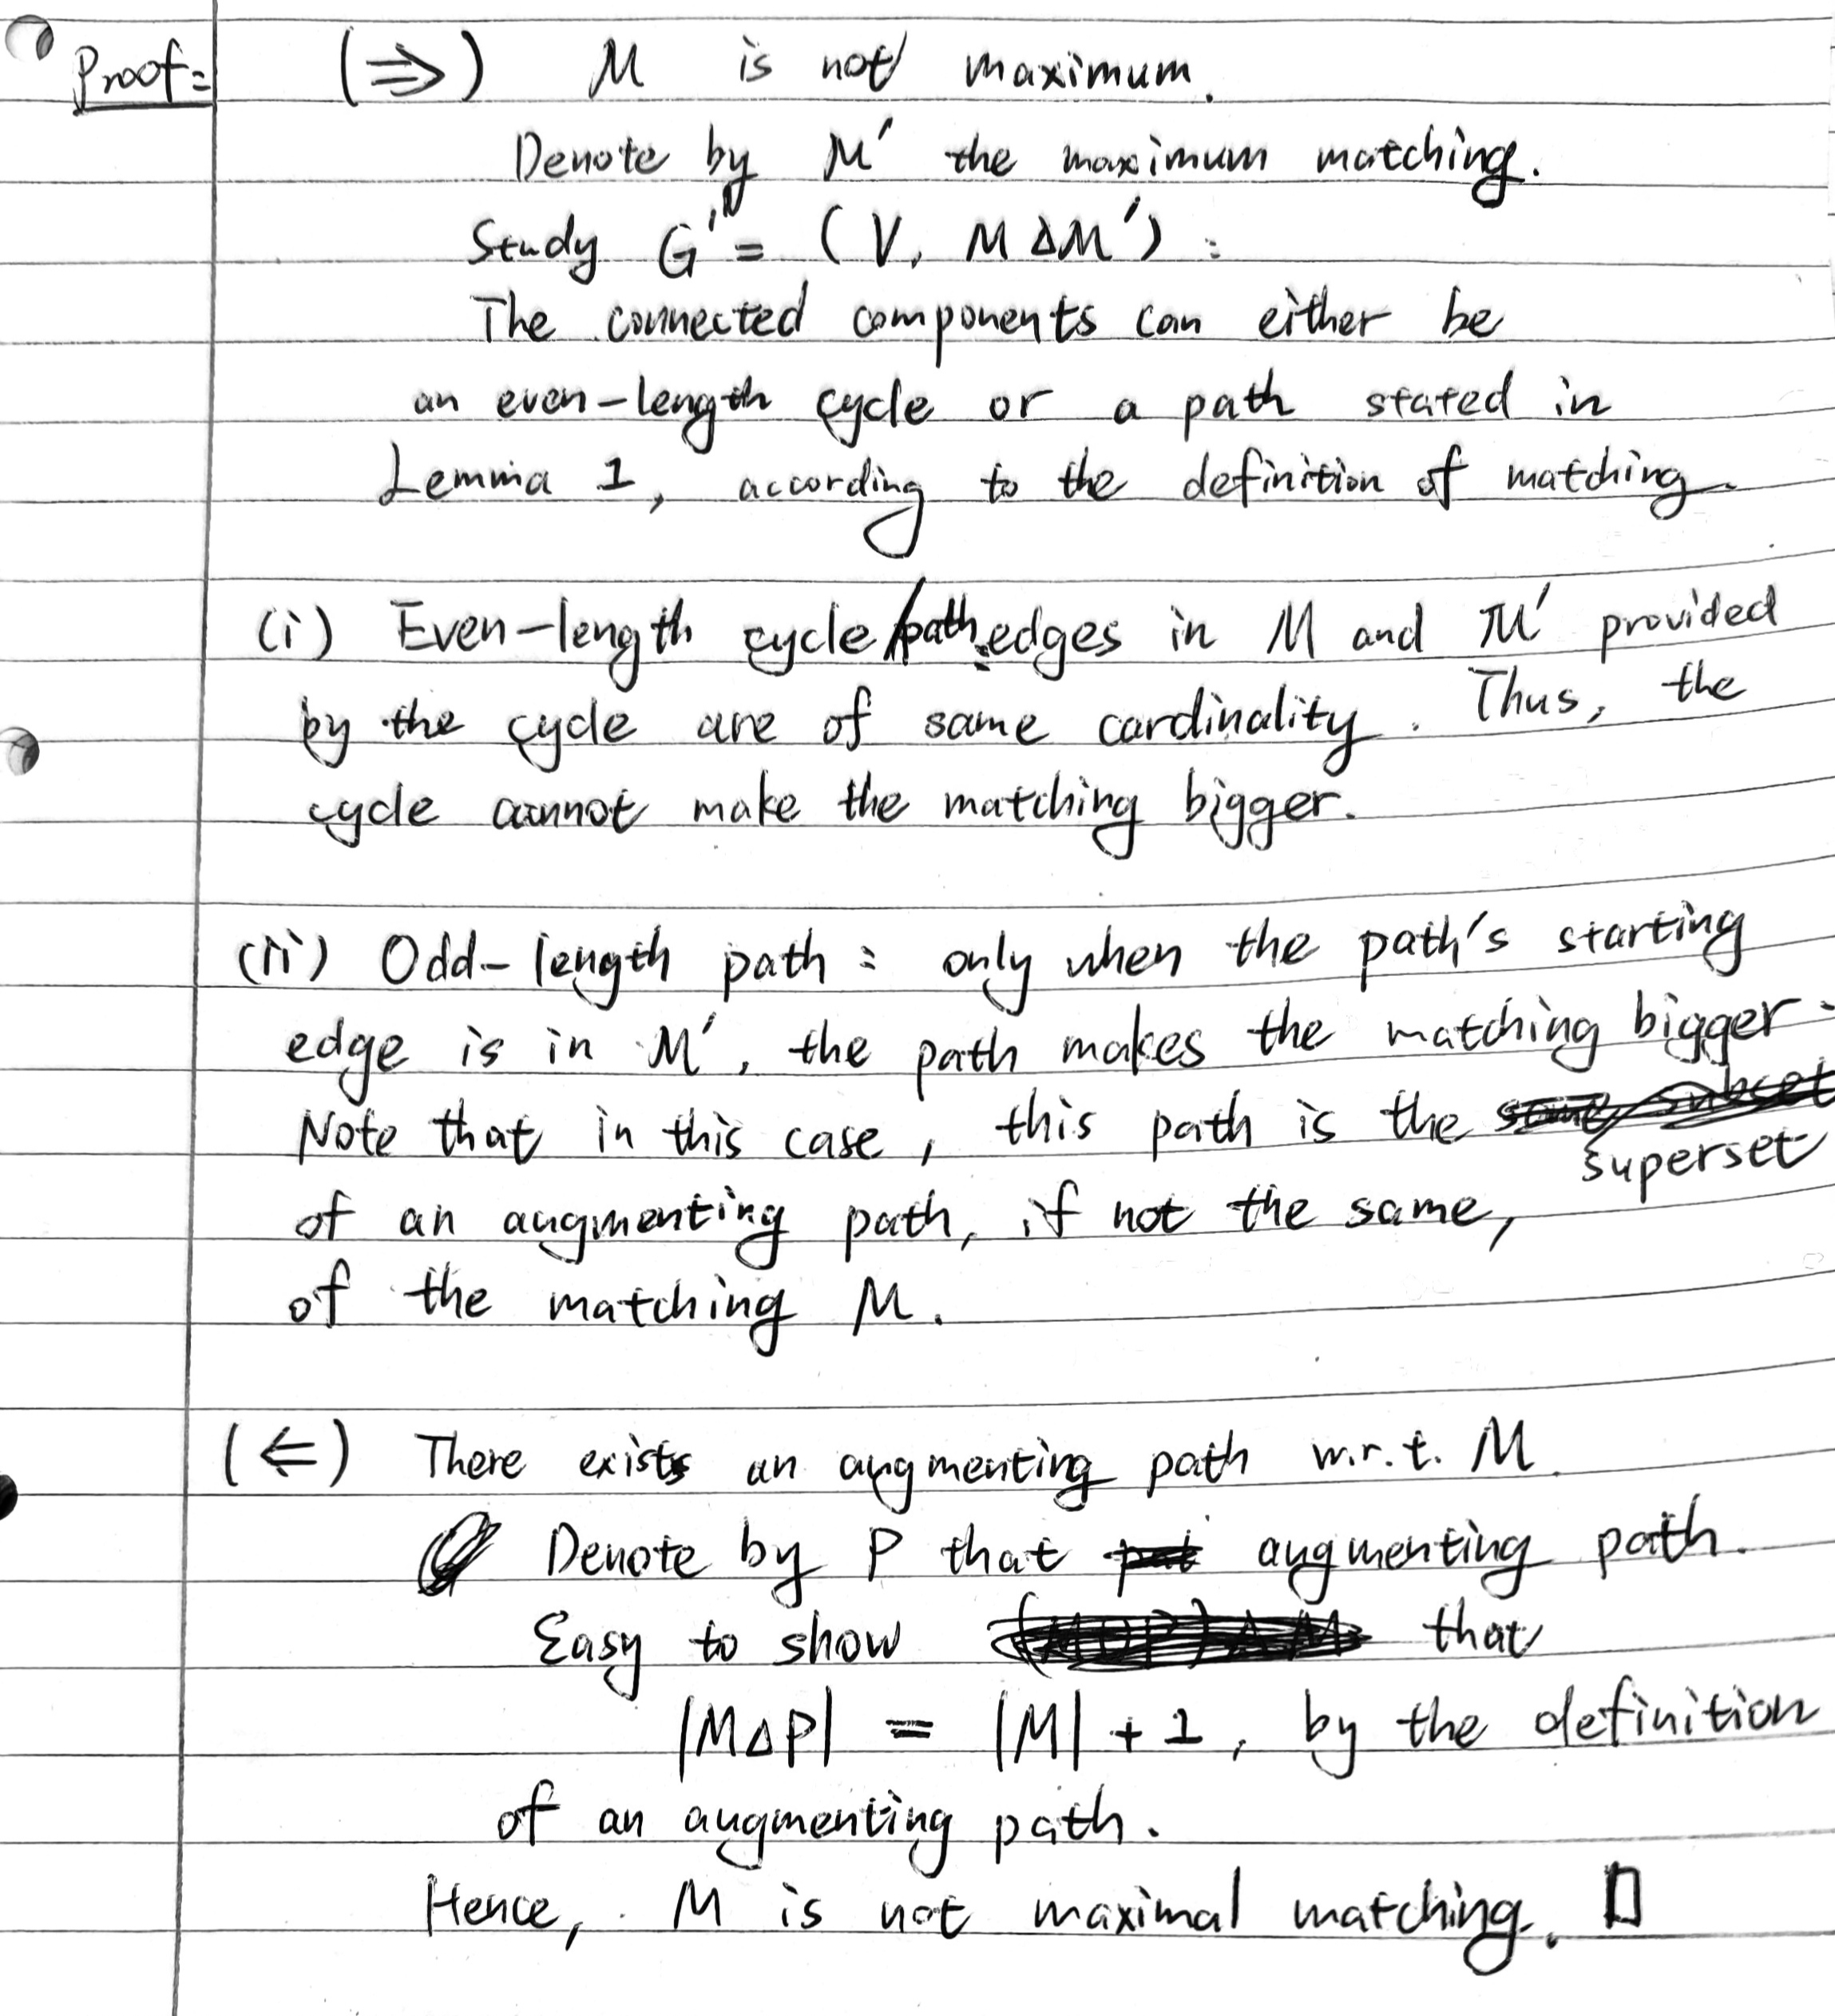 Proof: (⇒) M is not maximum.
Denote by M' the maximum matching.
Study G' = (V, M Δ M'):
The connected components can either be
an even-length cycle or a path stated in
Lemma 1, according to the definition of matching.
(i) Even-length cycle/path: edges in M and M' provided
by the cycle are of same cardinality. Thus, the
cycle cannot make the matching bigger.
(ii) Odd-length path: only when the path's starting
edge is in M', the path makes the matching bigger.
Note that in this case, this path is the
superset
of an augmenting path, if not the same,
of the matching M.
(⇐) There exists an augmenting path w.r.t. M.
Denote by P that augmenting path.
Easy to show that
|MΔP| = |M| + 1, by the definition
of an augmenting path.
Hence, M is not maximal matching. □